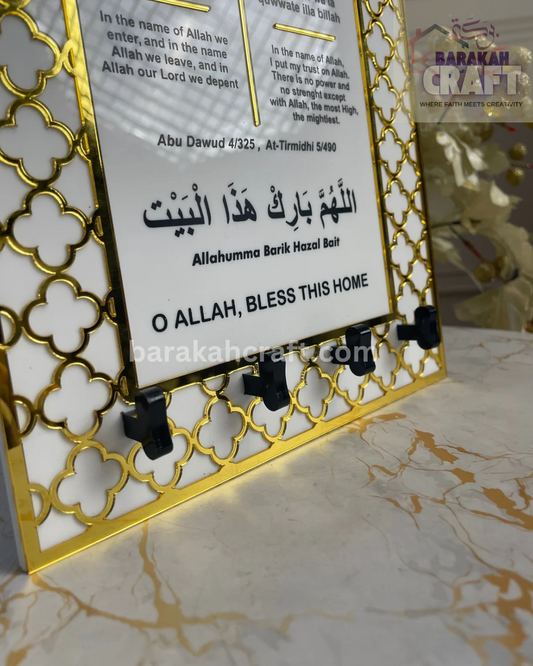 quwwate illa billah
In the name of Allah we
enter, and in the name
Allah we leave, and in
Allah our Lord we depent
In the name of Allah,
I put my trust on Allah.
There is no power and
no strenght except
with Allah, the most High,
the mightiest.
Abu Dawud 4/325 , At-Tirmidhi 5/490
اللَّهُمَّ بَارِكْ هَذَا الْبَيْت
Allahumma Barik Hazal Bait
O ALLAH, BLESS THIS HOME
barakahcraft.com
BARAKAH
CRAFT
WHERE FAITH MEETS CREATIVITY